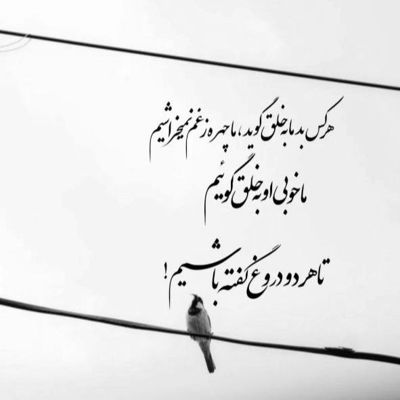 هرکس بد ما به خلق گوید، ما چهره ز غم نمیخراشیم
ما خوبی او به خلق گوئیم
تا هر دو دروغ گفته باشیم!